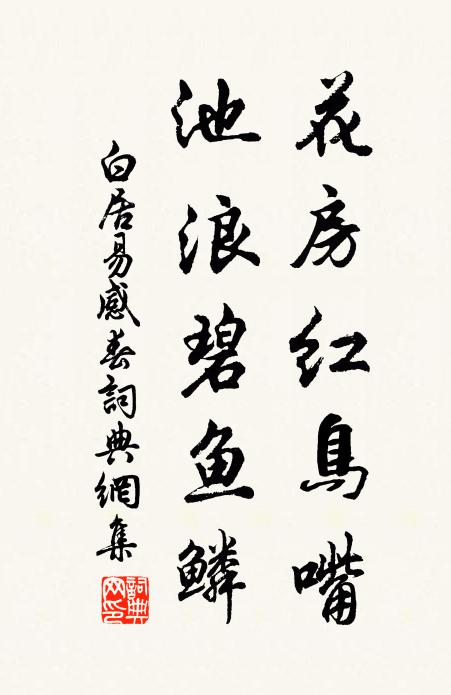 花房红鳥嘴
池浪碧鱼鳞
白居易感春詞典網集
詞典網印